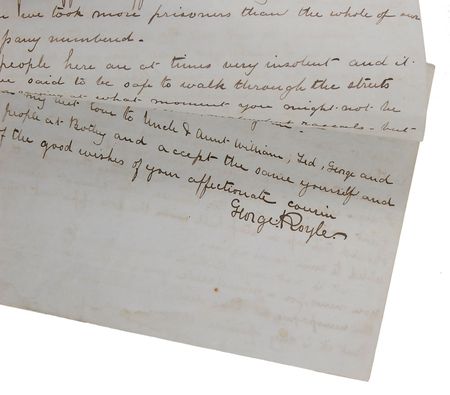 we took more prisoners than the whole of our
pany numbered.
people here are at times very insolent and it
said to be safe to walk through the streets
at what moment you might not be
love to Uncle & Aunt William, Ted, George and
people at Botley and accept the same yourself and
of the good wishes of your affectionate cousin
George Royle.